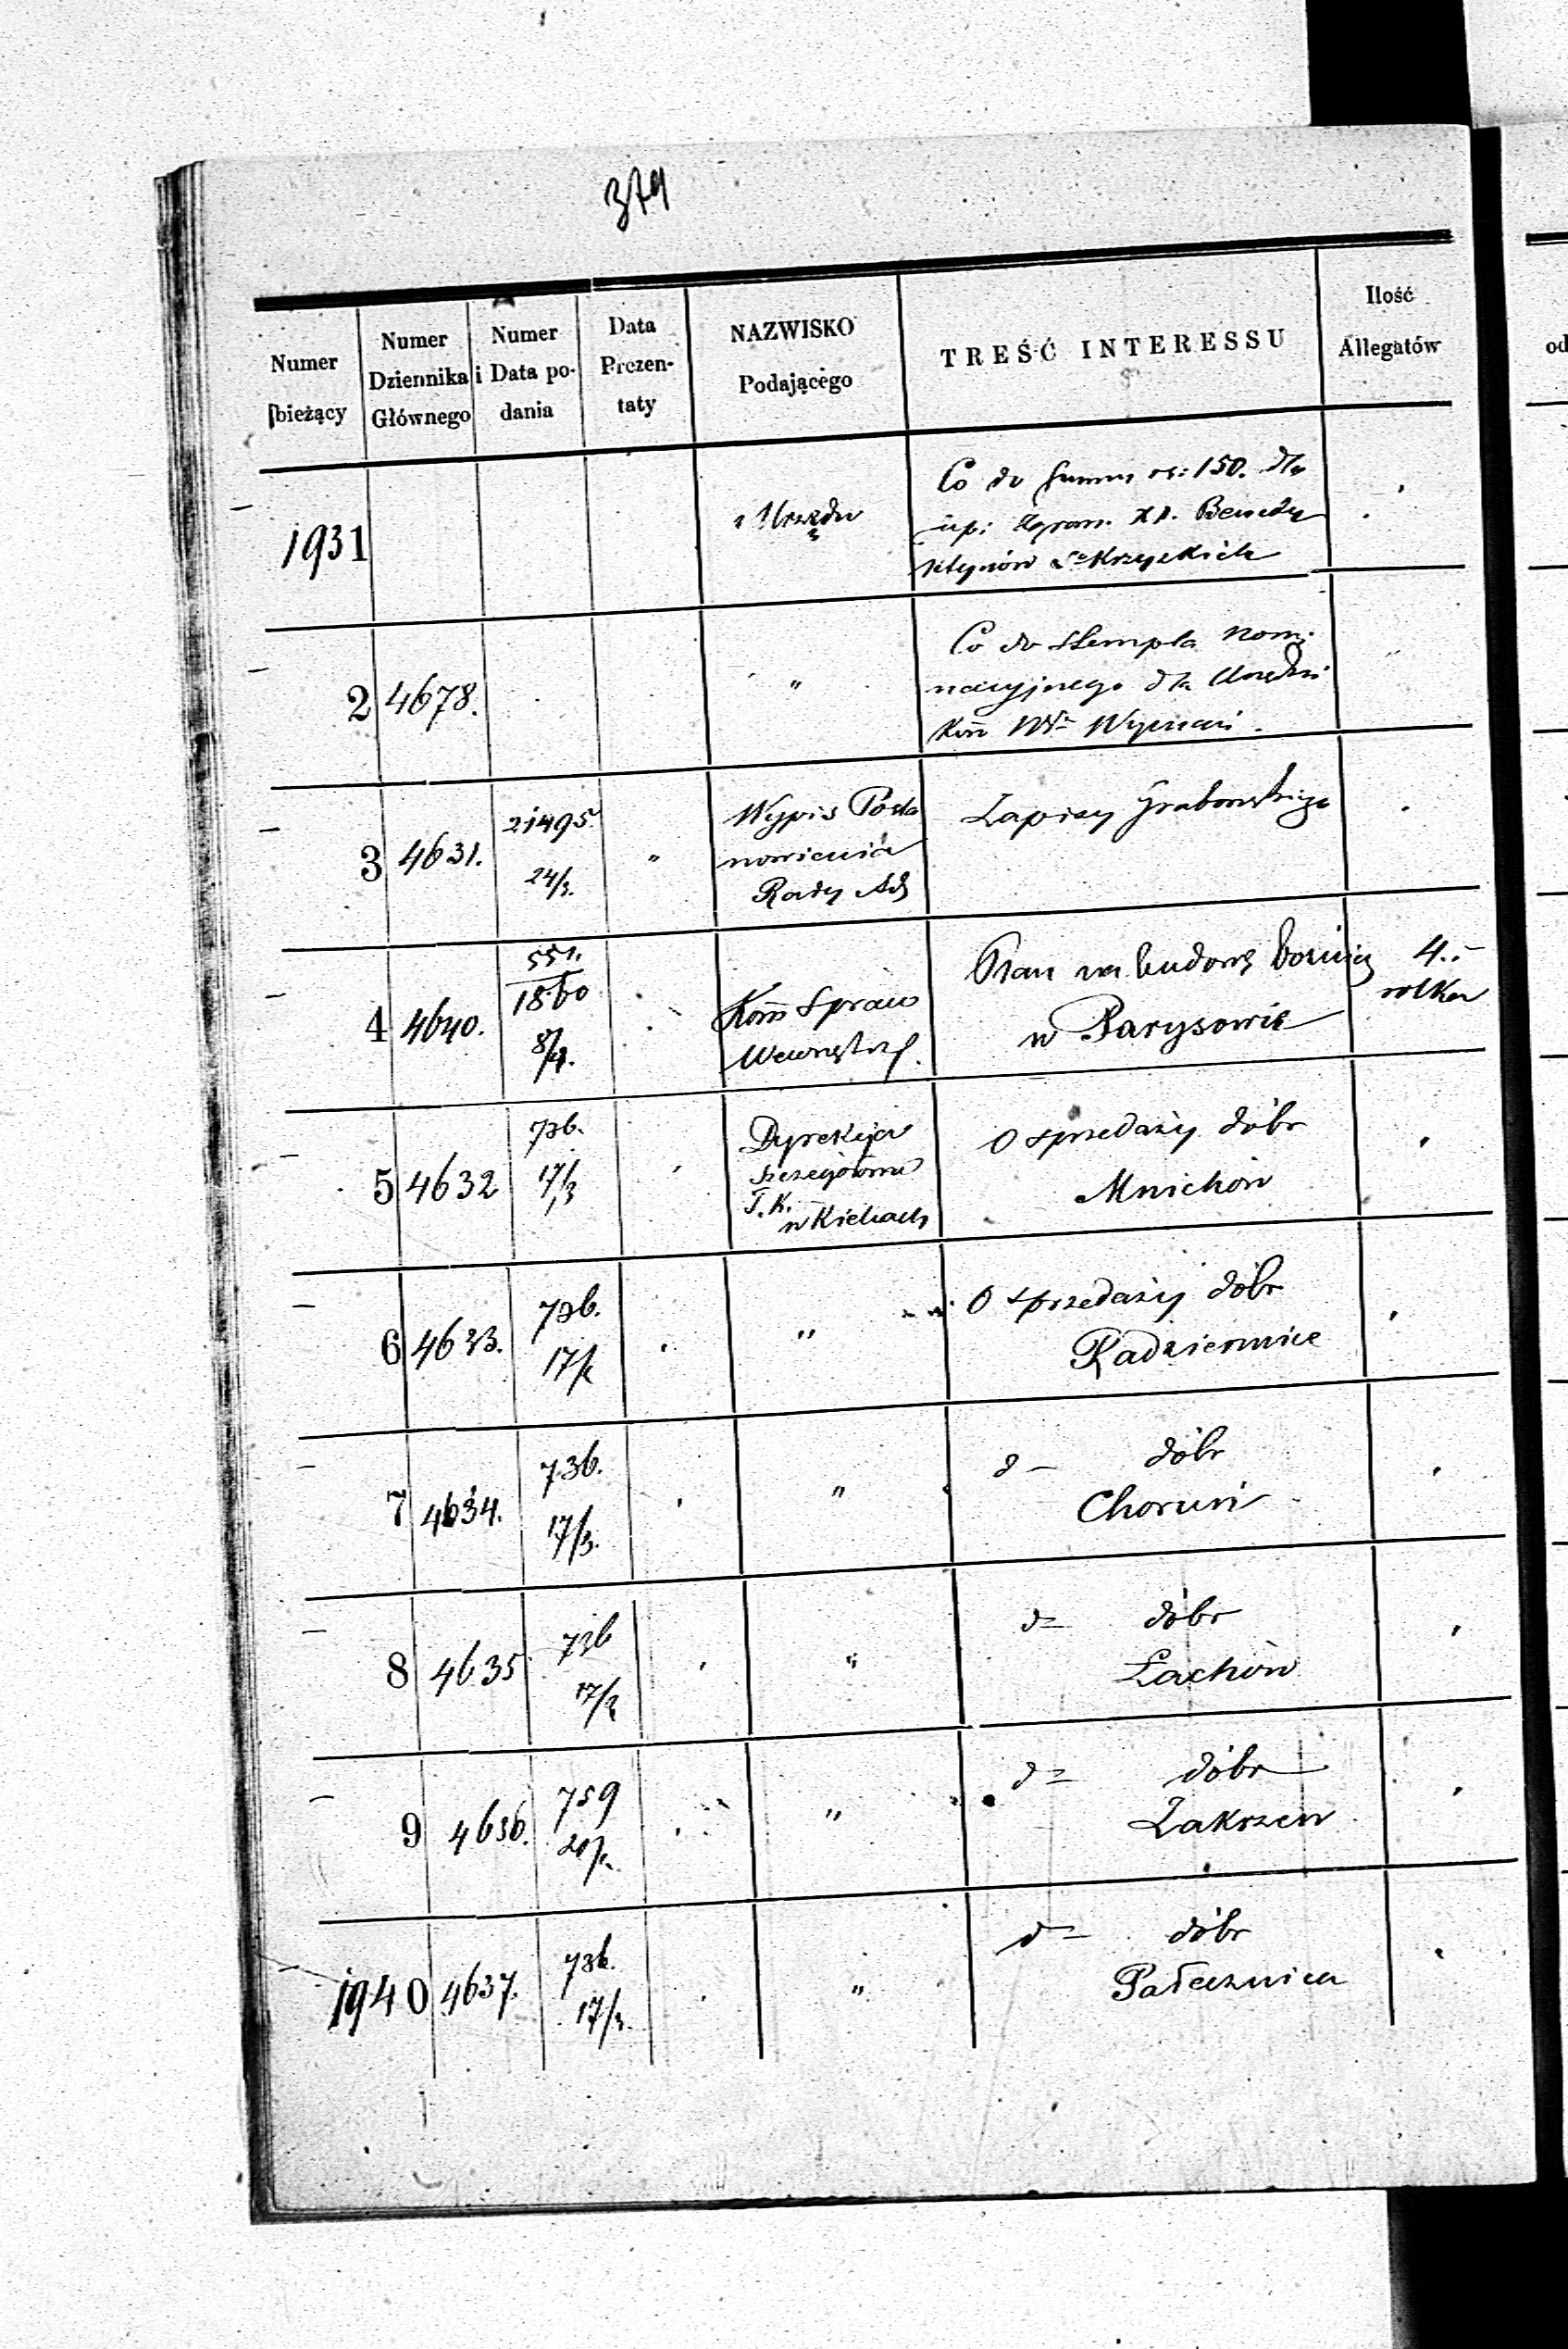 379
Numer
bieżący
Numer
Dziennika
Głównego
Numer
i Data po-
dania
Data
Prezen-
taty
NAZWISKO
Podającego
TREŚĆ INTERESSU
Ilość
Allegatów
1931
z Urzędu
Co do summy rs: 150. dla
Zgrom. XX. Benedy
ktynów Sto Krzyzkich
2
4678.
"
Co do stempla nomi
nacyjnego dla Urzędni
ków Wyznań.
3
4631.
21495.
24/3.
"
Wypis Posta
nowienia
Rady Ad
Zapisy Grabowskiego
4
4640.
551.
1860
8/4.
Kom Spraw
Wewnętrz.
Plan na budowę bożnicy
w Parysowie
4.-
rolka
5
4632
736.
17/3
Dyrekcja
Szczegółowa
T.K.
w Kielcach
O sprzedaży dóbr
Mnichów
6
4633.
736.
17/3
"
O sprzedaży dóbr
Radziemice
7
4634.
736.
17/3.
"
d- dóbr
Choruń
8
4635
736
17/3
"
d= dóbr
Łachów
9
4636.
759
20/3
"
d= dóbr
Zakrzew
1940
4637.
736.
17/3.
"
d= dóbr
Pałecznica